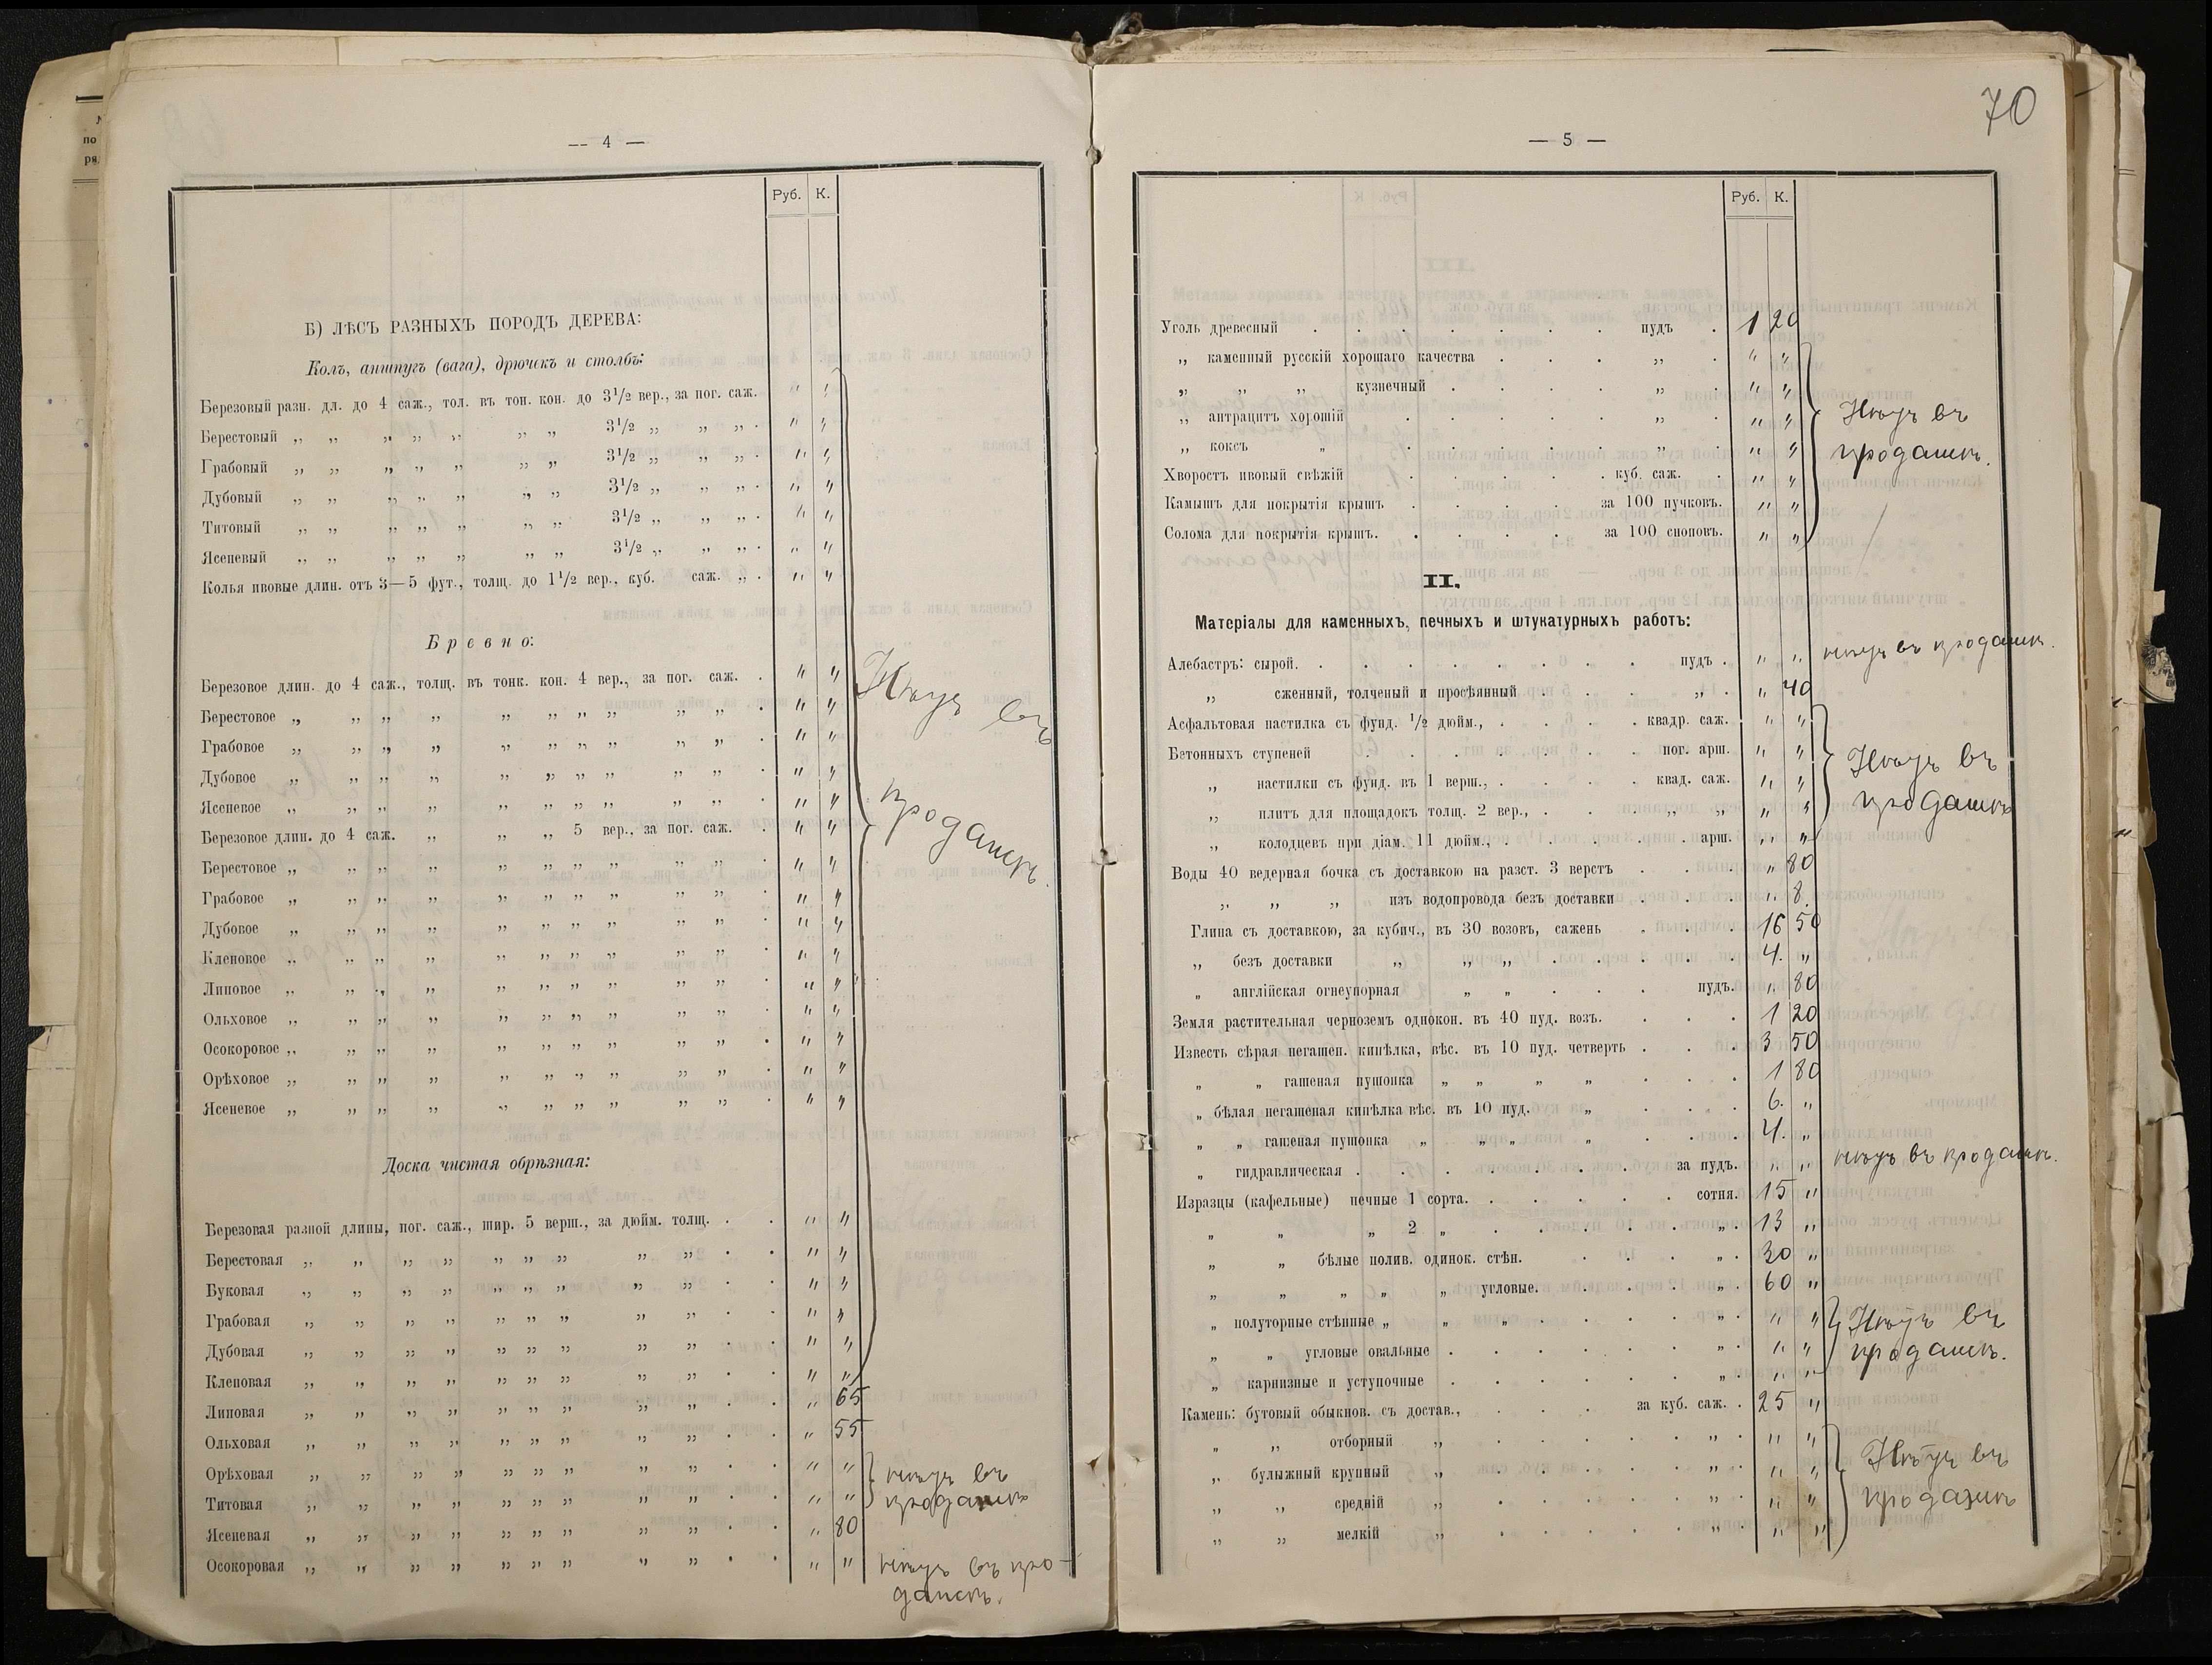 — 4 —
Руб. К.
Б) ЛѢСЪ РАЗНЫХЪ ПОРОДЪ ДЕРЕВА:
Колъ, аншпугъ (вага), дрючекъ и столбъ:
Березовый разн. дл. до 4 саж., тол. въ тон. кон. до 3½ вер., за пог. саж. „ „
Берестовый „ „ „ „ „ „ „ 3½ „ „ „ „ „
Грабовый „ „ „ „ „ „ „ 3½ „ „ „ „ „
Дубовый „ „ „ „ „ „ „ 3½ „ „ „ „ „
Титовый „ „ „ „ „ „ „ 3½ „ „ „ „ „
Ясеневый „ „ „ „ „ „ „ 3½ „ „ „ „ „
Колья ивовые длин. отъ 3—5 фут., толщ. до 1½ вер., куб. саж. „ „ „
Бревно:
Березовое длин. до 4 саж., толщ. въ тонк. кон. 4 вер., за пог. саж. „ „
Берестовое „ „ „ „ „ „ „ „ „ „ „ „
Грабовое „ „ „ „ „ „ „ „ „ „ „ „
Дубовое „ „ „ „ „ „ „ „ „ „ „ „
Ясеневое „ „ „ „ „ „ „ „ „ „ „ „
Березовое длин. до 4 саж. „ „ „ 5 вер., за пог. саж. „ „
Берестовое „ „ „ „ „ „ „ „ „ „ „ „
Грабовое „ „ „ „ „ „ „ „ „ „ „ „
Дубовое „ „ „ „ „ „ „ „ „ „ „ „
Кленовое „ „ „ „ „ „ „ „ „ „ „ „
Липовое „ „ „ „ „ „ „ „ „ „ „ „
Ольховое „ „ „ „ „ „ „ „ „ „ „ „
Осокоровое „ „ „ „ „ „ „ „ „ „ „ „
Орѣховое „ „ „ „ „ „ „ „ „ „ „ „
Ясеневое „ „ „ „ „ „ „ „ „ „ „ „
Нѣтъ въ
продажѣ.
Доска чистая обрѣзная:
Березовая разной длины, пог. саж., шир. 5 верш., за дюйм. толщ. „ „
Берестовая „ „ „ „ „ „ „ „ „ „ „
Буковая „ „ „ „ „ „ „ „ „ „ „
Грабовая „ „ „ „ „ „ „ „ „ „ „
Дубовая „ „ „ „ „ „ „ „ „ „ „
Кленовая „ „ „ „ „ „ „ „ „ „ „
Липовая „ „ „ „ „ „ „ „ „ „ 65
Ольховая „ „ „ „ „ „ „ „ „ „ 55
Орѣховая „ „ „ „ „ „ „ „ „ „ „ нѣтъ въ
Титовая „ „ „ „ „ „ „ „ „ „ „ продажѣ
Ясеневая „ „ „ „ „ „ „ „ „ „ 80
Осокоровая „ „ „ „ „ „ „ „ „ „ „ нѣтъ въ про-
дажѣ.
70
— 5 —
Руб. К.
Уголь древесный пудъ 1 20
„ каменный русскій хорошаго качества „ „ „
„ „ „ кузнечный „ „ „
„ антрацитъ хорошій „ „ „ Нѣтъ въ
„ коксъ „ „ „ „ продажѣ.
Хворостъ ивовый свѣжій куб. саж. „ „
Камышъ для покрытія крышъ за 100 пучковъ. „ „
Солома для покрытія крышъ. за 100 сноповъ. „ „
II.
Матеріалы для каменныхъ, печныхъ и штукатурныхъ работъ:
Алебастръ: сырой. пудъ „ „ нѣтъ въ продажѣ.
„ сженный, толченый и просѣянный „ „ 40
Асфальтовая настилка съ фунд. ½ дюйм., квадр. саж. „ „
Бетонныхъ ступеней пог. арш. „ „ Нѣтъ въ
„ настилки съ фунд. въ 1 верш., квад. саж. „ „ продажѣ
„ плитъ для площадокъ толщ. 2 вер., „ „ „ „
„ колодцевъ при діам. 11 дюйм., арш. „ „
Воды 40 ведерная бочка съ доставкою на разст. 3 верстъ „ 80
„ „ „ изъ водопровода безъ доставки „ 8.
Глина съ доставкою, за кубич., въ 30 возовъ, сажень 16 50
„ безъ доставки „ „ „ 4. „
„ англійская огнеупорная „ „ пудъ. „ 80
Земля растительная черноземъ однокон. въ 40 пуд. возъ. 1 20
Известь сѣрая негашен. кипѣлка, вѣс. въ 10 пуд. четверть 3 50
„ „ гашеная пушонка „ „ „ „ 1 80
„ бѣлая негашеная кипѣлка вѣс. въ 10 пуд. „ 6. „
„ „ гашеная пушонка „ „ „ „ 4. „
„ гидравлическая за пудъ. „ „ нѣтъ въ продажѣ.
Изразцы (кафельные) печные 1 сорта. сотня. 15 „
„ „ „ 2 „ „ 13 „
„ „ бѣлые полив. одинок. стѣн. „ 30 „
„ „ „ „ „ угловые. „ 60 „
„ полуторные стѣнные „ „ „ „ „ „ Нѣтъ въ
„ „ угловые овальные „ „ „ продажѣ.
„ карнизные и уступочные „ „ „
Камень: бутовый обыкнов. съ достав., за куб. саж. 25 „
„ „ отборный „ „ „ „
„ булыжный крупный „ „ „ „ Нѣтъ въ
„ „ средній „ „ „ „ продажѣ
„ „ мелкій „ „ „ „